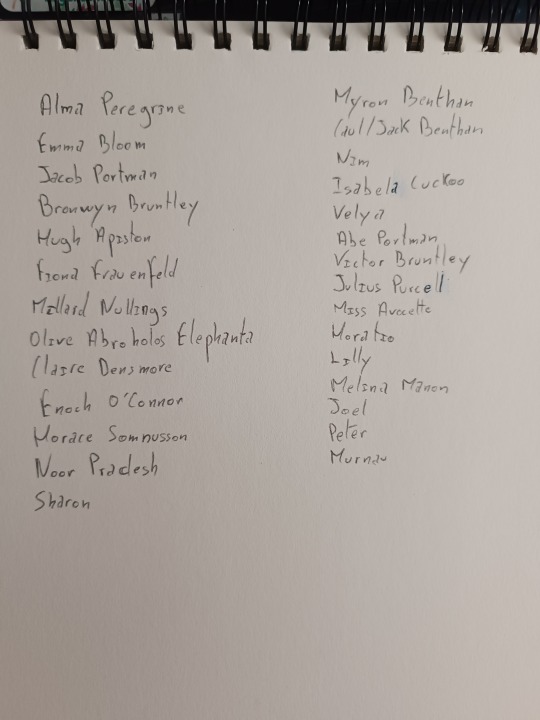 Alma Peregrine
Emma Bloom
Jacob Portman
Bronwyn Bruntley
Hugh Apiston
Fiona Frauenfeld
Millard Nullings
Olive Abroholos Elephanta
Claire Densmore
Enoch O'Connor
Horace Somnusson
Noor Pradesh
Sharon
Myron Benthan
Caul/Jack Benthan
Nim
Isabela Cuckoo
Velya
Abe Portman
Victor Bruntley
Julius Purcell
Miss Avocette
Horatio
Lilly
Melina Manon
Joel
Peter
Murnau